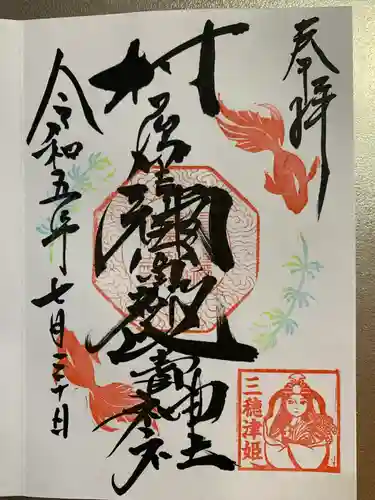 奉拝
村屋坐彌冨都比賣神社
令和五年七月三十日
三穂津姫